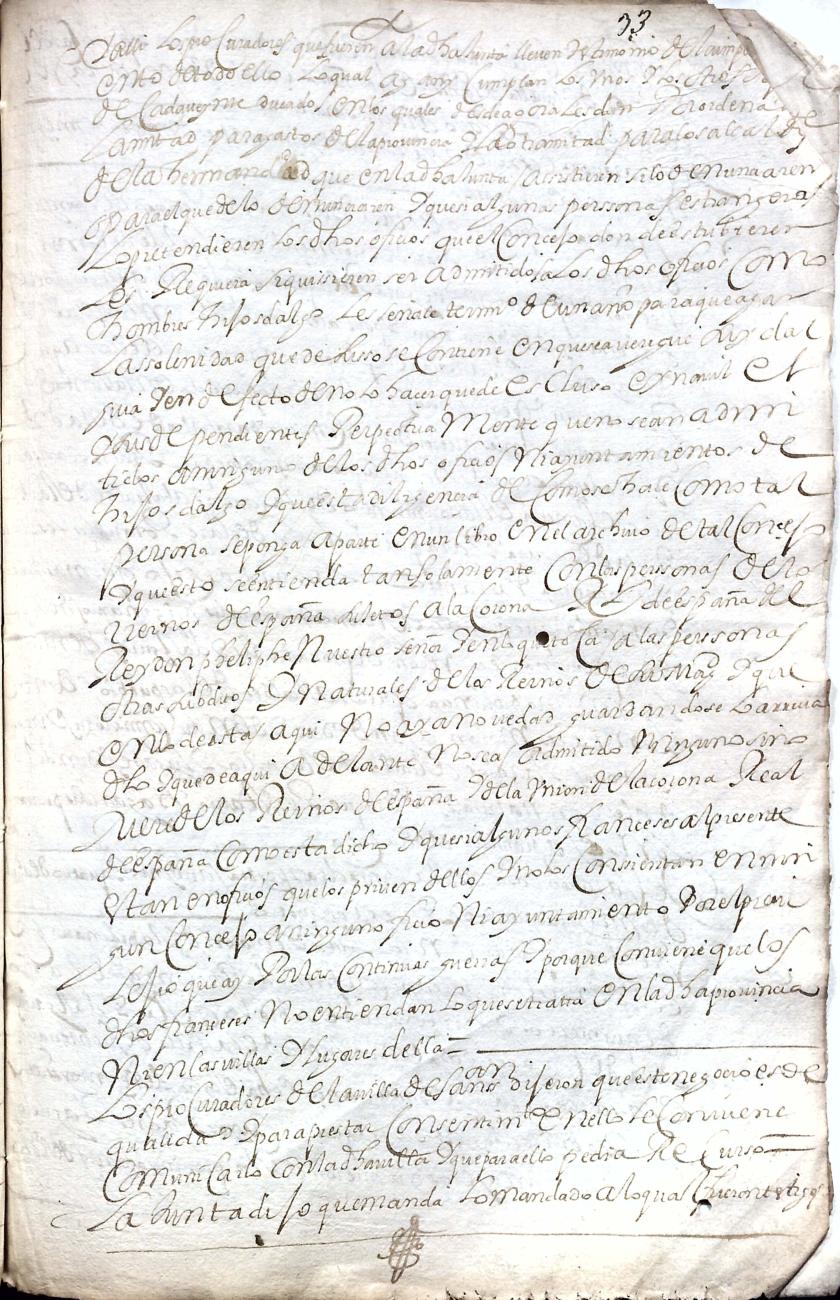 33
Y alli los procuradores que fueren a la dha Junta lleven testimonio del cumpli
ento de todo ello Lo qual agan y Cumplan los unos y los otros
de Cada veynte ducados en los quales desde aora les dan Por
La mitad para gastos de la provincia y La otra mitad para los alcaldes
de la hermandad que en la dha Junta assistieren si lo denunciaren
o para el que de lo denunciaren Y que si algunas personas estrangeras
Lo pretendieren los dhos oficios que el Concejo donde estubieren
Les Requiera si quissieren ser admitidos a los dhos oficios Como
hombres hijosdalgo Le señale termo de un año para que agan
La ssolenidad que de Susso se Contiene en que se averigue su ydal
guia Y en defecto de no lo hacer quede escluso e ynavil el
Y sus dependientes Perpetua Mente que no sean admi
tidos a ninguno de los dhos oficios Ni ayuntamientos de
hijosdalgo Y que esta diligencia de Como se hace Como tal
persona se ponga aparte en un libro en el archivo de tal Concejo
Y que esto se entienda tan solamente Con las personas de los
Reinos de España sujetos a la Corona Rl de España del
Rey don pheliphe Nuestro señor Y en lo que toca a las perssonas
otras subditos Y Naturales de los Reinos de Su Magd Y que
en lo de asta aqui No aya novedad guardandose lo arriva
dho Y que de aqui Adelante No sea admitido Ninguno sino
fuere de los Reinos de España Y de la Union de la corona Real
de España Como esta dicho Y que si algunos franceses al presente
estan en oficios que los priven dellos Y no los Consientan en nin
gun Concejo a ninguno oficio Ni ayuntamiento Por el perjui
cio que ay Por las Continuas guerras Y porque Conviene que los
dhos franceses No entiendan lo que se tratta en la dha provincia
Ni en las villas Y lugares della =
Los procuradores de la villa de San Sn dijeron que este negocio es de
qualidad Y para prestar Consentimto en ello le Conviene
Comunicarlo con la dha villa Y que para ello pedia Recurso
La Junta dijo que manda lo mandado a lo qual fueron testigos